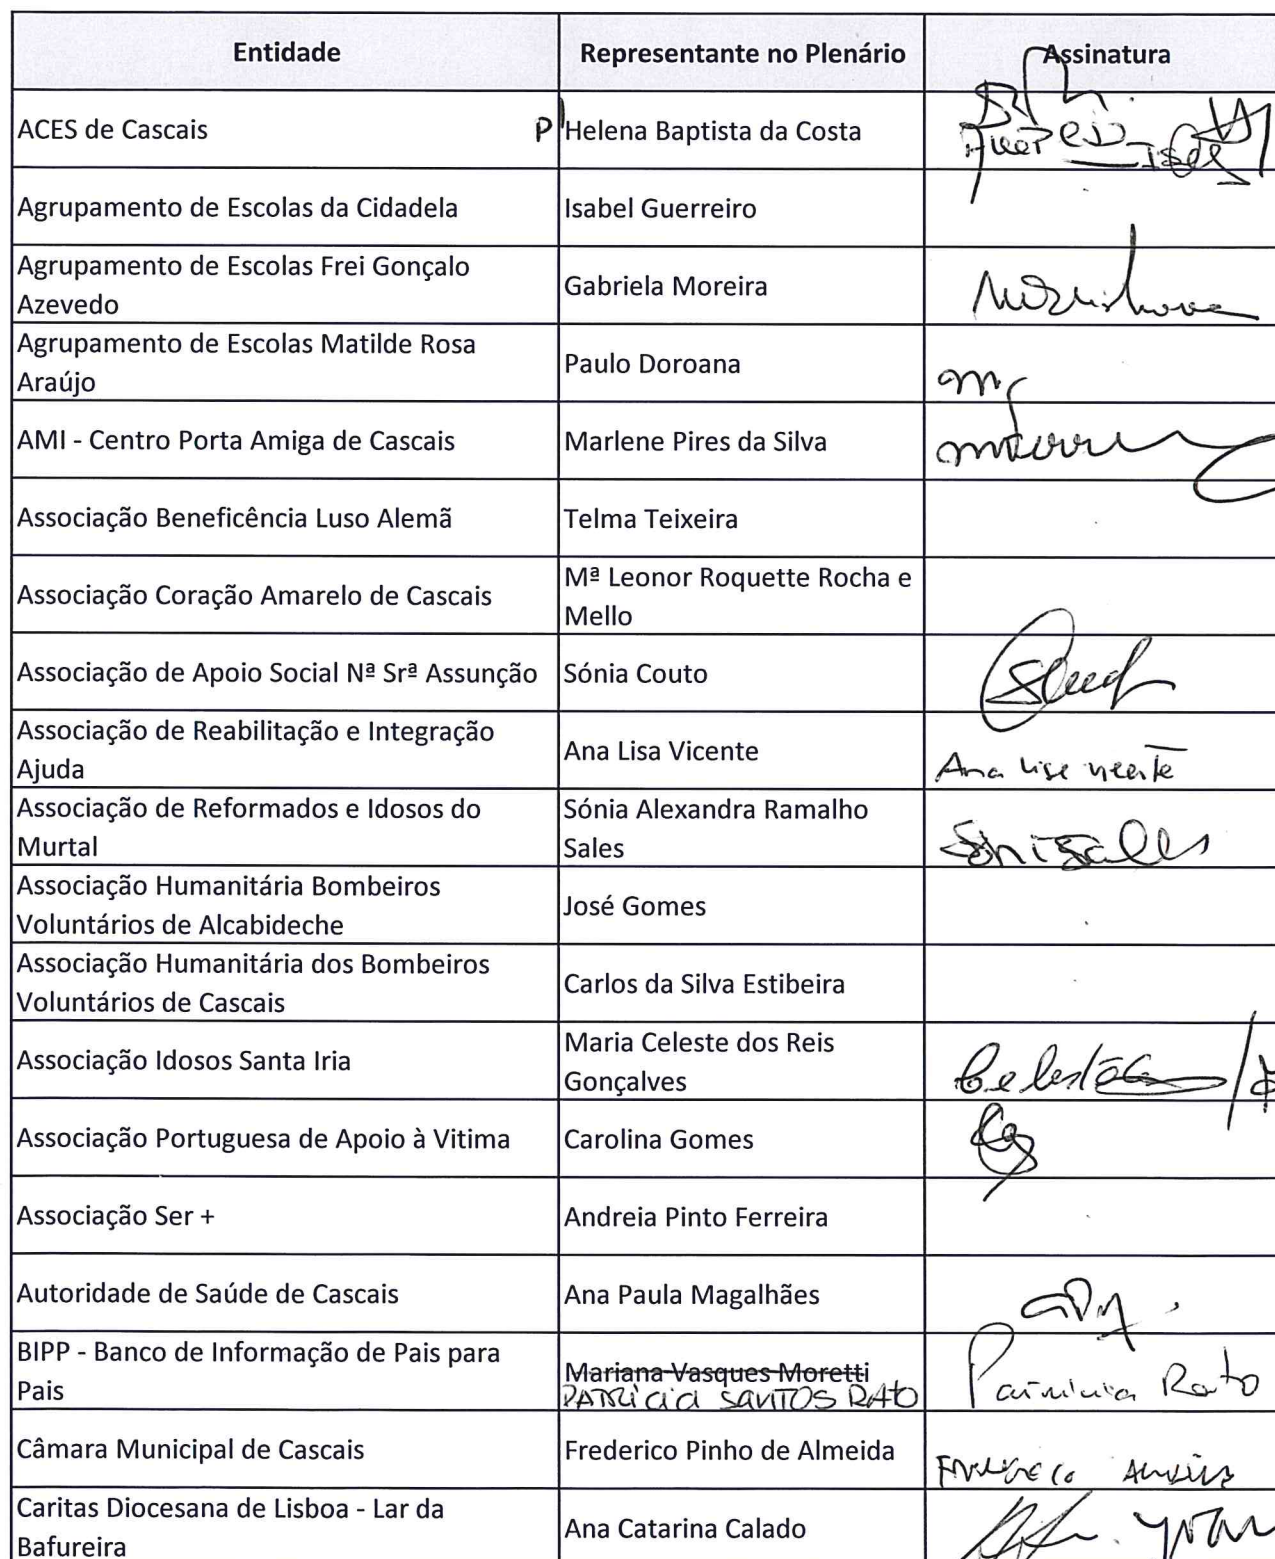 Entidade Representante no Plenário Assinatura
ACES de Cascais P' Helena Baptista da Costa
Agrupamento de Escolas da Cidadela Isabel Guerreiro
Agrupamento de Escolas Frei Gonçalo
Azevedo
Gabriela Moreira
Agrupamento de Escolas Matilde Rosa
Araújo
Paulo Doroana
AMI - Centro Porta Amiga de Cascais Marlene Pires da Silva
Associação Beneficência Luso Alemã Telma Teixeira
Associação Coração Amarelo de Cascais
Mª Leonor Roquette Rocha e
Mello
Associação de Apoio Social Nª Srª Assunção Sónia Couto
Associação de Reabilitação e Integração
Ajuda
Ana Lisa Vicente
Ana Lisa Vicente
Associação de Reformados e Idosos do
Murtal
Sónia Alexandra Ramalho
Sales
Associação Humanitária Bombeiros
Voluntários de Alcabideche
José Gomes
Associação Humanitária dos Bombeiros
Voluntários de Cascais
Carlos da Silva Estibeira
Associação Idosos Santa Iria
Maria Celeste dos Reis
Gonçalves
Associação Portuguesa de Apoio à Vitima Carolina Gomes
Associação Ser + Andreia Pinto Ferreira
Autoridade de Saúde de Cascais Ana Paula Magalhães
BIPP - Banco de Informação de Pais para
Pais
Mariana Vasques Moretti
PATRICIA SANTOS RATO
Patricia Rato
Câmara Municipal de Cascais Frederico Pinho de Almeida
Caritas Diocesana de Lisboa - Lar da
Bafureira
Ana Catarina Calado